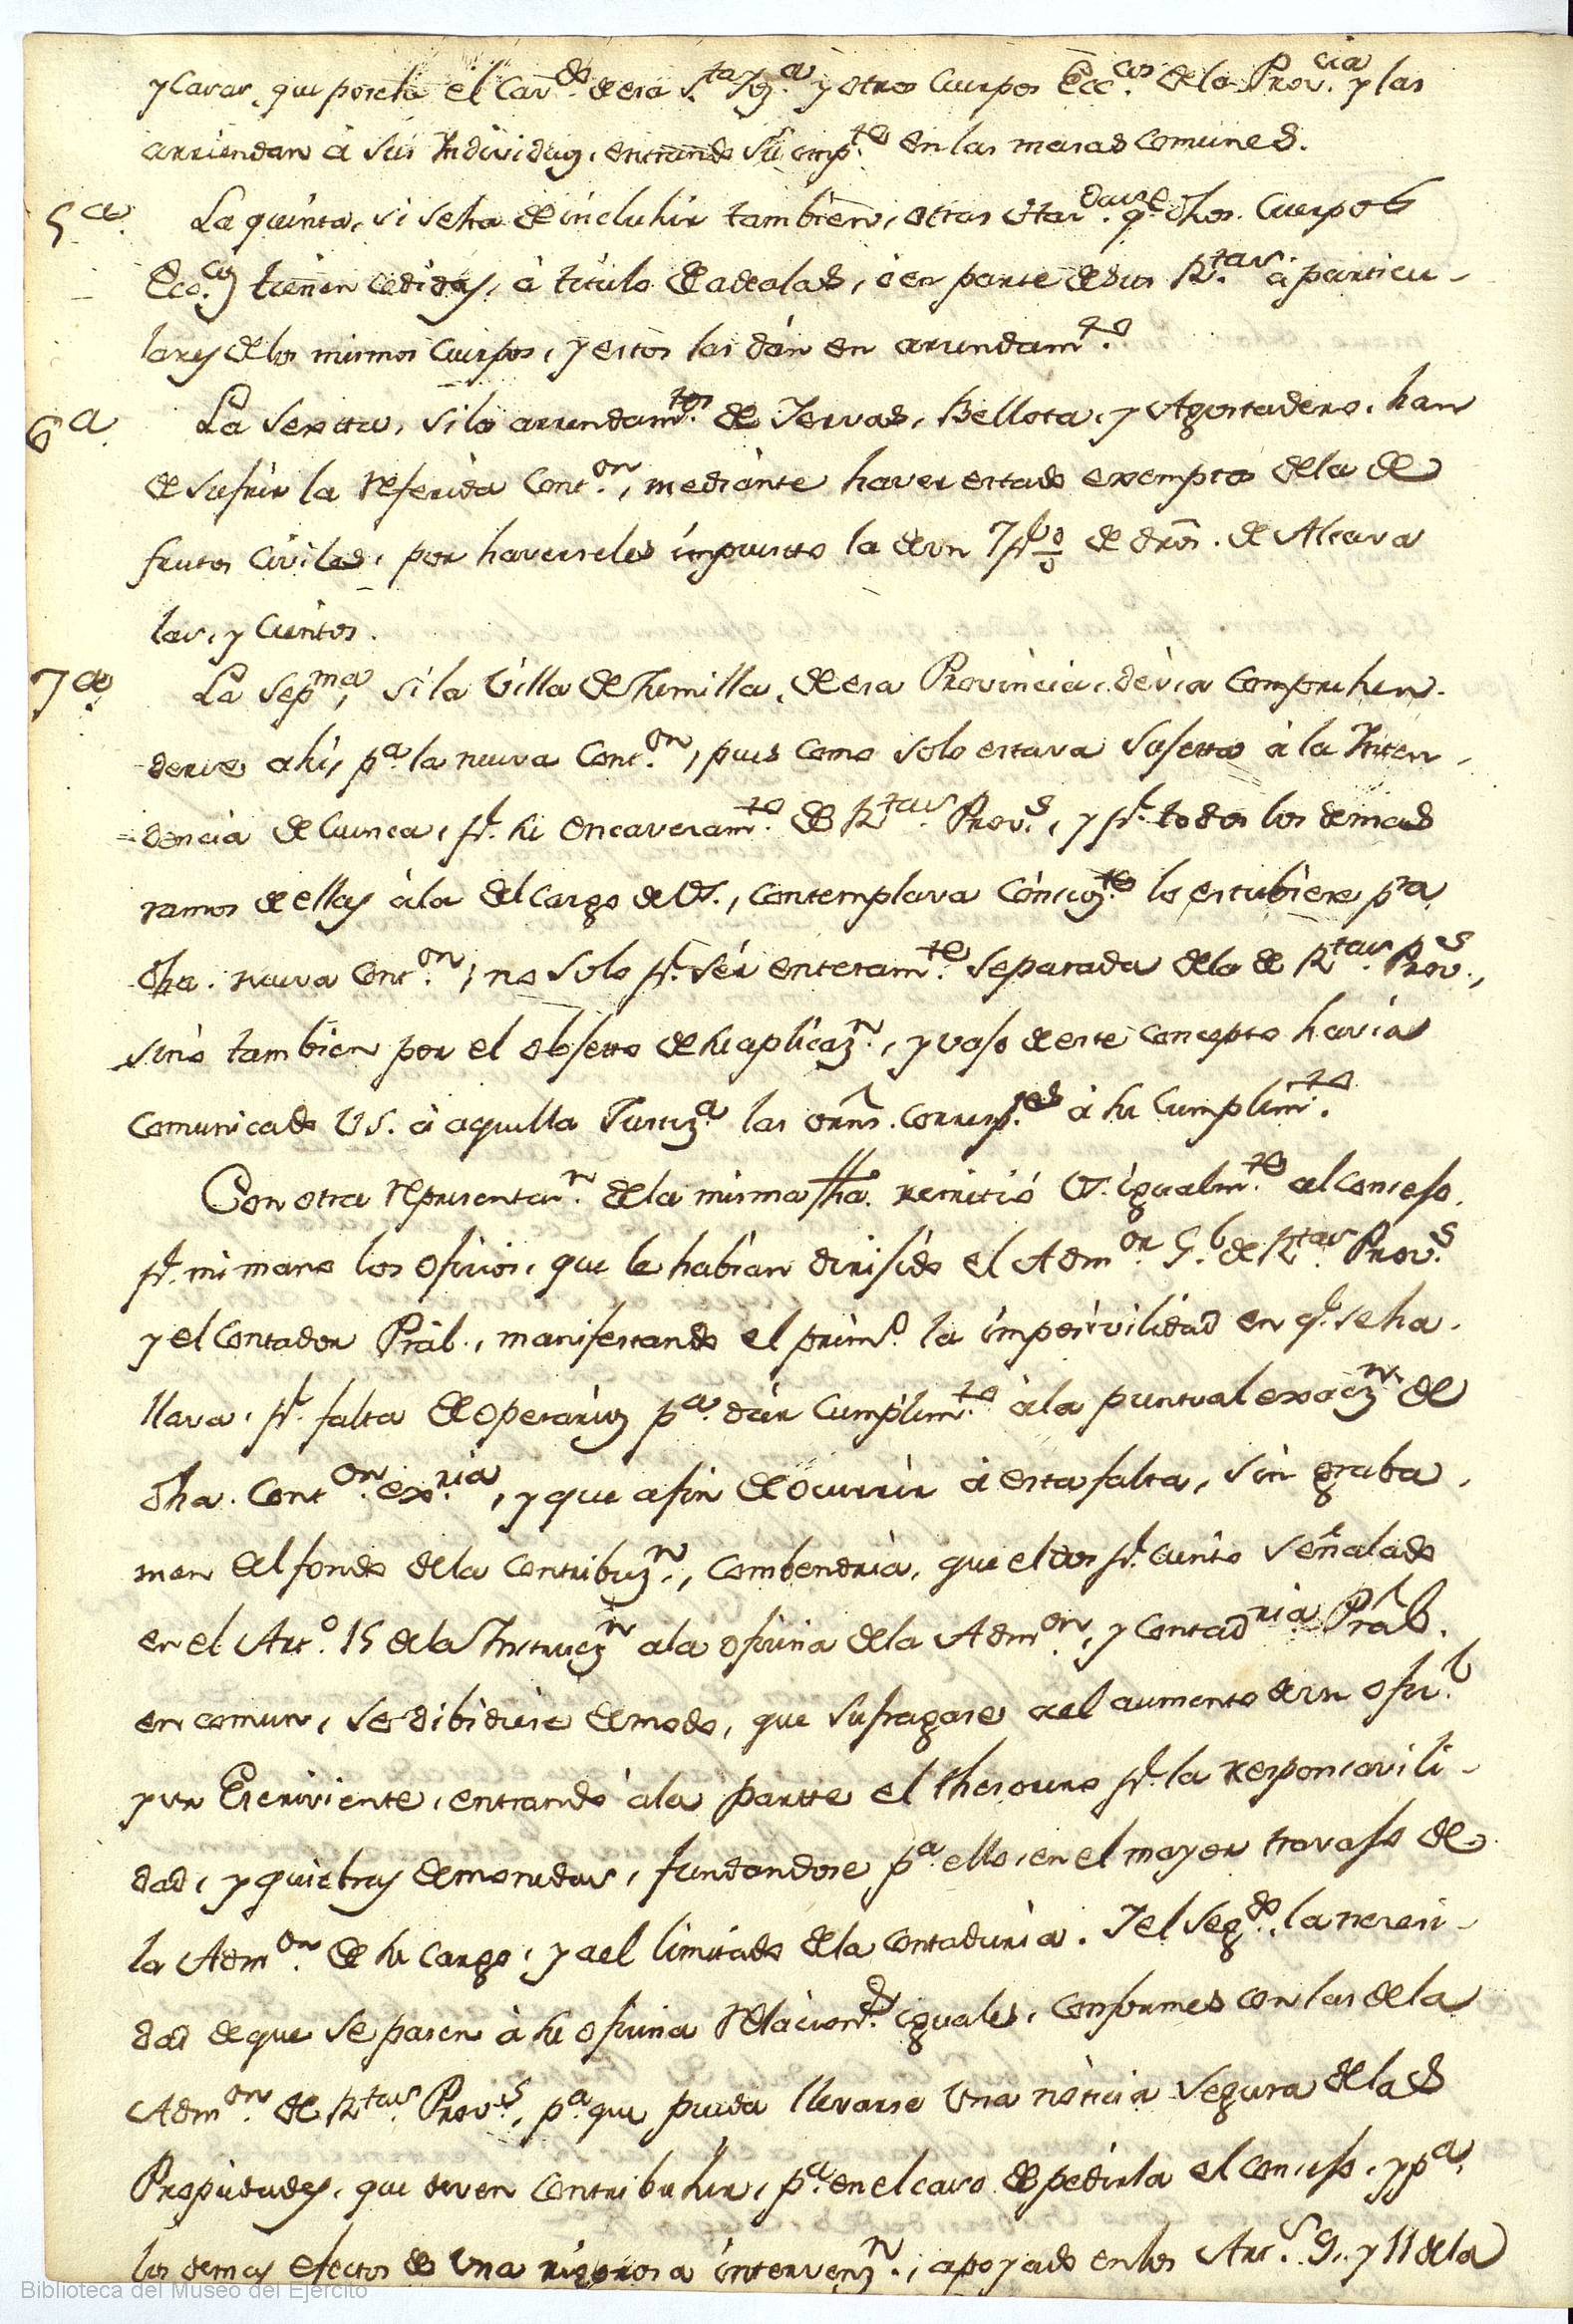 y Casas, que poseia el Cav.do de esa S.ta Ygª. y otros Cuerpos Ecc.cos de la Prov.cia y las
arriendan á sus Individuos, entrando su imp.te en las masas comunes.
5ª. La quinta, si se ha de incluhir tambien, otras situadas q.e dhos. Cuerpos
Ecc.cos tienen cedidas, á titulo de adealas, ó en parte de sus R.tas á particu-
lares de los mismos Cuerpos, y estos las dán en arrendam.to
6ª. La Sexta, si los arrendam.tos de Yervas, Bellota, y Agostadero, han
de sufrir la referida Cont.on, mediante haver estado exemptos de la de
frutos Civiles, por haverseles impuesto la de un 7 p% de dros. de Alcava
las, y Cientos.
7ª. La Sep.ma, si la Villa de Jumilla, de esa Provincia, devia Comprehen-
derse ahi, pª. la nueva Cont.on, pues como solo estava sujetta á la Inten-
dencia de Cuenca, pr. su encavezam.to de R.tas Prov.s, y pr. todos los demas
ramos de ellas á la del Cargo de VS., contemplava Consig.te lo estubiese p.ra
dha. nueva Cont.on, no solo pr. ser enteram.te separada de la de R.tas Prov.s,
sino tambien por el objetto de su aplicaz.n, y vajo de este concepto havia
comunicado VS. á aquella Justizª. las orns. corresp.tes á su Cumplim.to
Con otra representaz.n de la misma fha. remitió VS. igualm.te al Consejo,
pr. mi mano los oficios, que le habían dirijido el Adm.or G.l de R.tas Prov.s
y el Contador Pral., manifestando el prim.o la imposivilidad en q.e se ha-
llava, pr. falta de operarios pª. dár Cumplim.to á la puntual exacz.n de
dha. Cont.on ex.ria, y que afin de ocurrir á esta falta, sin graba-
men del fondo de la Contribuz.n, Combendria, que el dos pr. ciento señalado
en el Art.o 15 de la Instrucz.n a la oficina de la Adm.on, y Contad.ria Prál.
en comun, se dibidiese de modo, que sufragase a el aumento de un ofic.l
y un Escriviente, entrando á la partte el thesorero pr. la responsavili-
dad, y quiebras de monedas, fundandose pª. ello, en el mayor travajo de
la Adm.on de su Cargo, y a el limitado de la Contaduria. Y el Seg.do, la necesi-
dad de que se pasen á su oficina relacion.s iguales, conformes con las de la
Adm.on de R.tas Prov.s, pª. que pueda llevarse una noticia Segura de las
Propiedades, que deven Contribuhir, pª. en el caso de pedirla el Consejo, y pª.
los demas efectos de una rigorosa intervenz.n, apoyado en los Art.s 9., y 11 de la
Biblioteca del Museo del Ejército